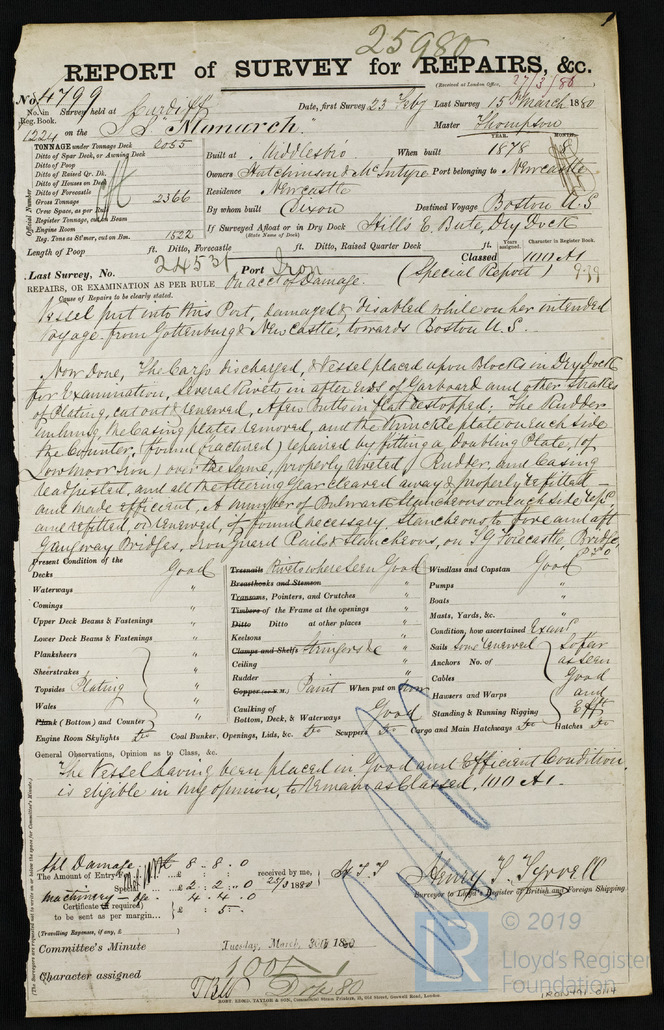 25980
REPORT of SURVEY for REPAIRS, &c.
(Received at London Office, 27/3/80
No. 4799
No. in Reg. Book. Survey held at Cardiff Date, first Survey 23 Feby Last Survey 15 March 1880
1224 on the S.S. "Monarch" Master Thompson
TONNAGE under Tonnage Deck 2055
Ditto of Spar Deck, or Awning Deck
Ditto of Poop
Ditto of Raised Qr. Dk.
Ditto of Houses on Deck
Ditto of Forecastle
Gross Tonnage 2366
Crew Space, as per Rule
Register Tonnage, cut on Beam
Engine Room
Reg. Tons as St'mer, cut on Bm. 1522
Official Number
YEAR. MONTH.
Built at Middlesbro When built 1878 8
Owners Hutchinson & McIntyre Port belonging to Newcastle
Residence Newcastle
By whom built Dixon Destined Voyage Boston U.S
If Surveyed Afloat or in Dry Dock Hill's E. Bute, Dry Dock
(State Name of Dock)
Length of Poop ft. Ditto, Forecastle ft. Ditto, Raised Quarter Deck ft.
Years assigned. Character in Register Book.
Classed 100 A1
Last Survey, No. 24531 Port Iron (Special Report)
REPAIRS, OR EXAMINATION AS PER RULE On acct of Damage.
Cause of Repairs to be clearly stated.
Vessel put into this Port, damaged & disabled while on her intended
Voyage from Gottenburg & Newcastle, towards Boston U.S.
Now Done, The Cargo discharged, & Vessel placed upon Blocks in Dry Dock
for Examination, Several Rivets in after ends of Garboard and other Strakes
of Plating, cut out & renewed, A few Butts in flat restopped; The Rudder
unhung, the Casing plates removed, and the plate on each side
the Counter, (found fractured) repaired by fitting a doubling Plate, (of
Lowmoor iron) over the same, properly riveted, Rudder, and Casing
readjusted, and all the Steering Gear cleared away & properly refitted
and made efficient, A number of Bulwark Stancheons on each side
and refitted, or renewed, if found necessary, Stancheons, to fore and aft
Gangway Bridges, Iron Guard Rails & Stancheons, on TG Forecastle, Bridge,
P.T.O
Present Condition of the
Decks Good
Waterways "
Comings "
Upper Deck Beams & Fastenings "
Lower Deck Beams & Fastenings "
Planksheers
Sheerstrakes
Topsides Plating "
Wales
Plank (Bottom) and Counter
Treenails Rivets where seen Good
Breasthooks and Stemson "
Transoms, Pointers, and Crutches "
Timbers of the Frame at the openings "
Ditto Ditto at other places "
Keelsons "
Clamps and Shelfs Stringers &c "
Ceiling "
Rudder "
Copper (or Y.M.) Paint When put on
Caulking of Bottom, Deck, & Waterways Good
Windlass and Capstan Good
Pumps "
Boats "
Masts, Yards, &c. "
Condition, how ascertained Examd
Sails some renewed
Anchors No. of
Cables
Hawsers and Warps
Standing & Running Rigging
So far as seen Good and Efft
Engine Room Skylights Do Coal Bunker, Openings, Lids, &c. Do Scuppers Do Cargo and Main Hatchways Do Hatches Do
General Observations, Opinion as to Class, &c.
The Vessel having been placed in Good and Efficient Condition,
is eligible in my opinion, to remain as Classed, 100 A1.
Spl Damage £ 8 : 8 : 0
The Amount of Entry Fee
Special £ 2 : 2 : 0 received by me, 25/3 1880
machinery 4 . 4 . 0
Certificate (if required) £ : 5 : -
to be sent as per margin...
(Travelling Expenses, if any, £ )
H.T.T
Henry T. Tyrrell
Surveyor to Lloyd's Register of British and Foreign Shipping
Committee's Minute Tuesday, March, 30th 1880
Character assigned 100 A 1
TBW
80
ROBT. EDMD. TAYLOR & SON, Commercial Steam Printers, 19, Old Street, Goswell Road, London.
(The Surveyors are requested not to write on or below the space for Committee's Minute.)
© 2019
LR Lloyd's Register
Foundation
IRON491-0114